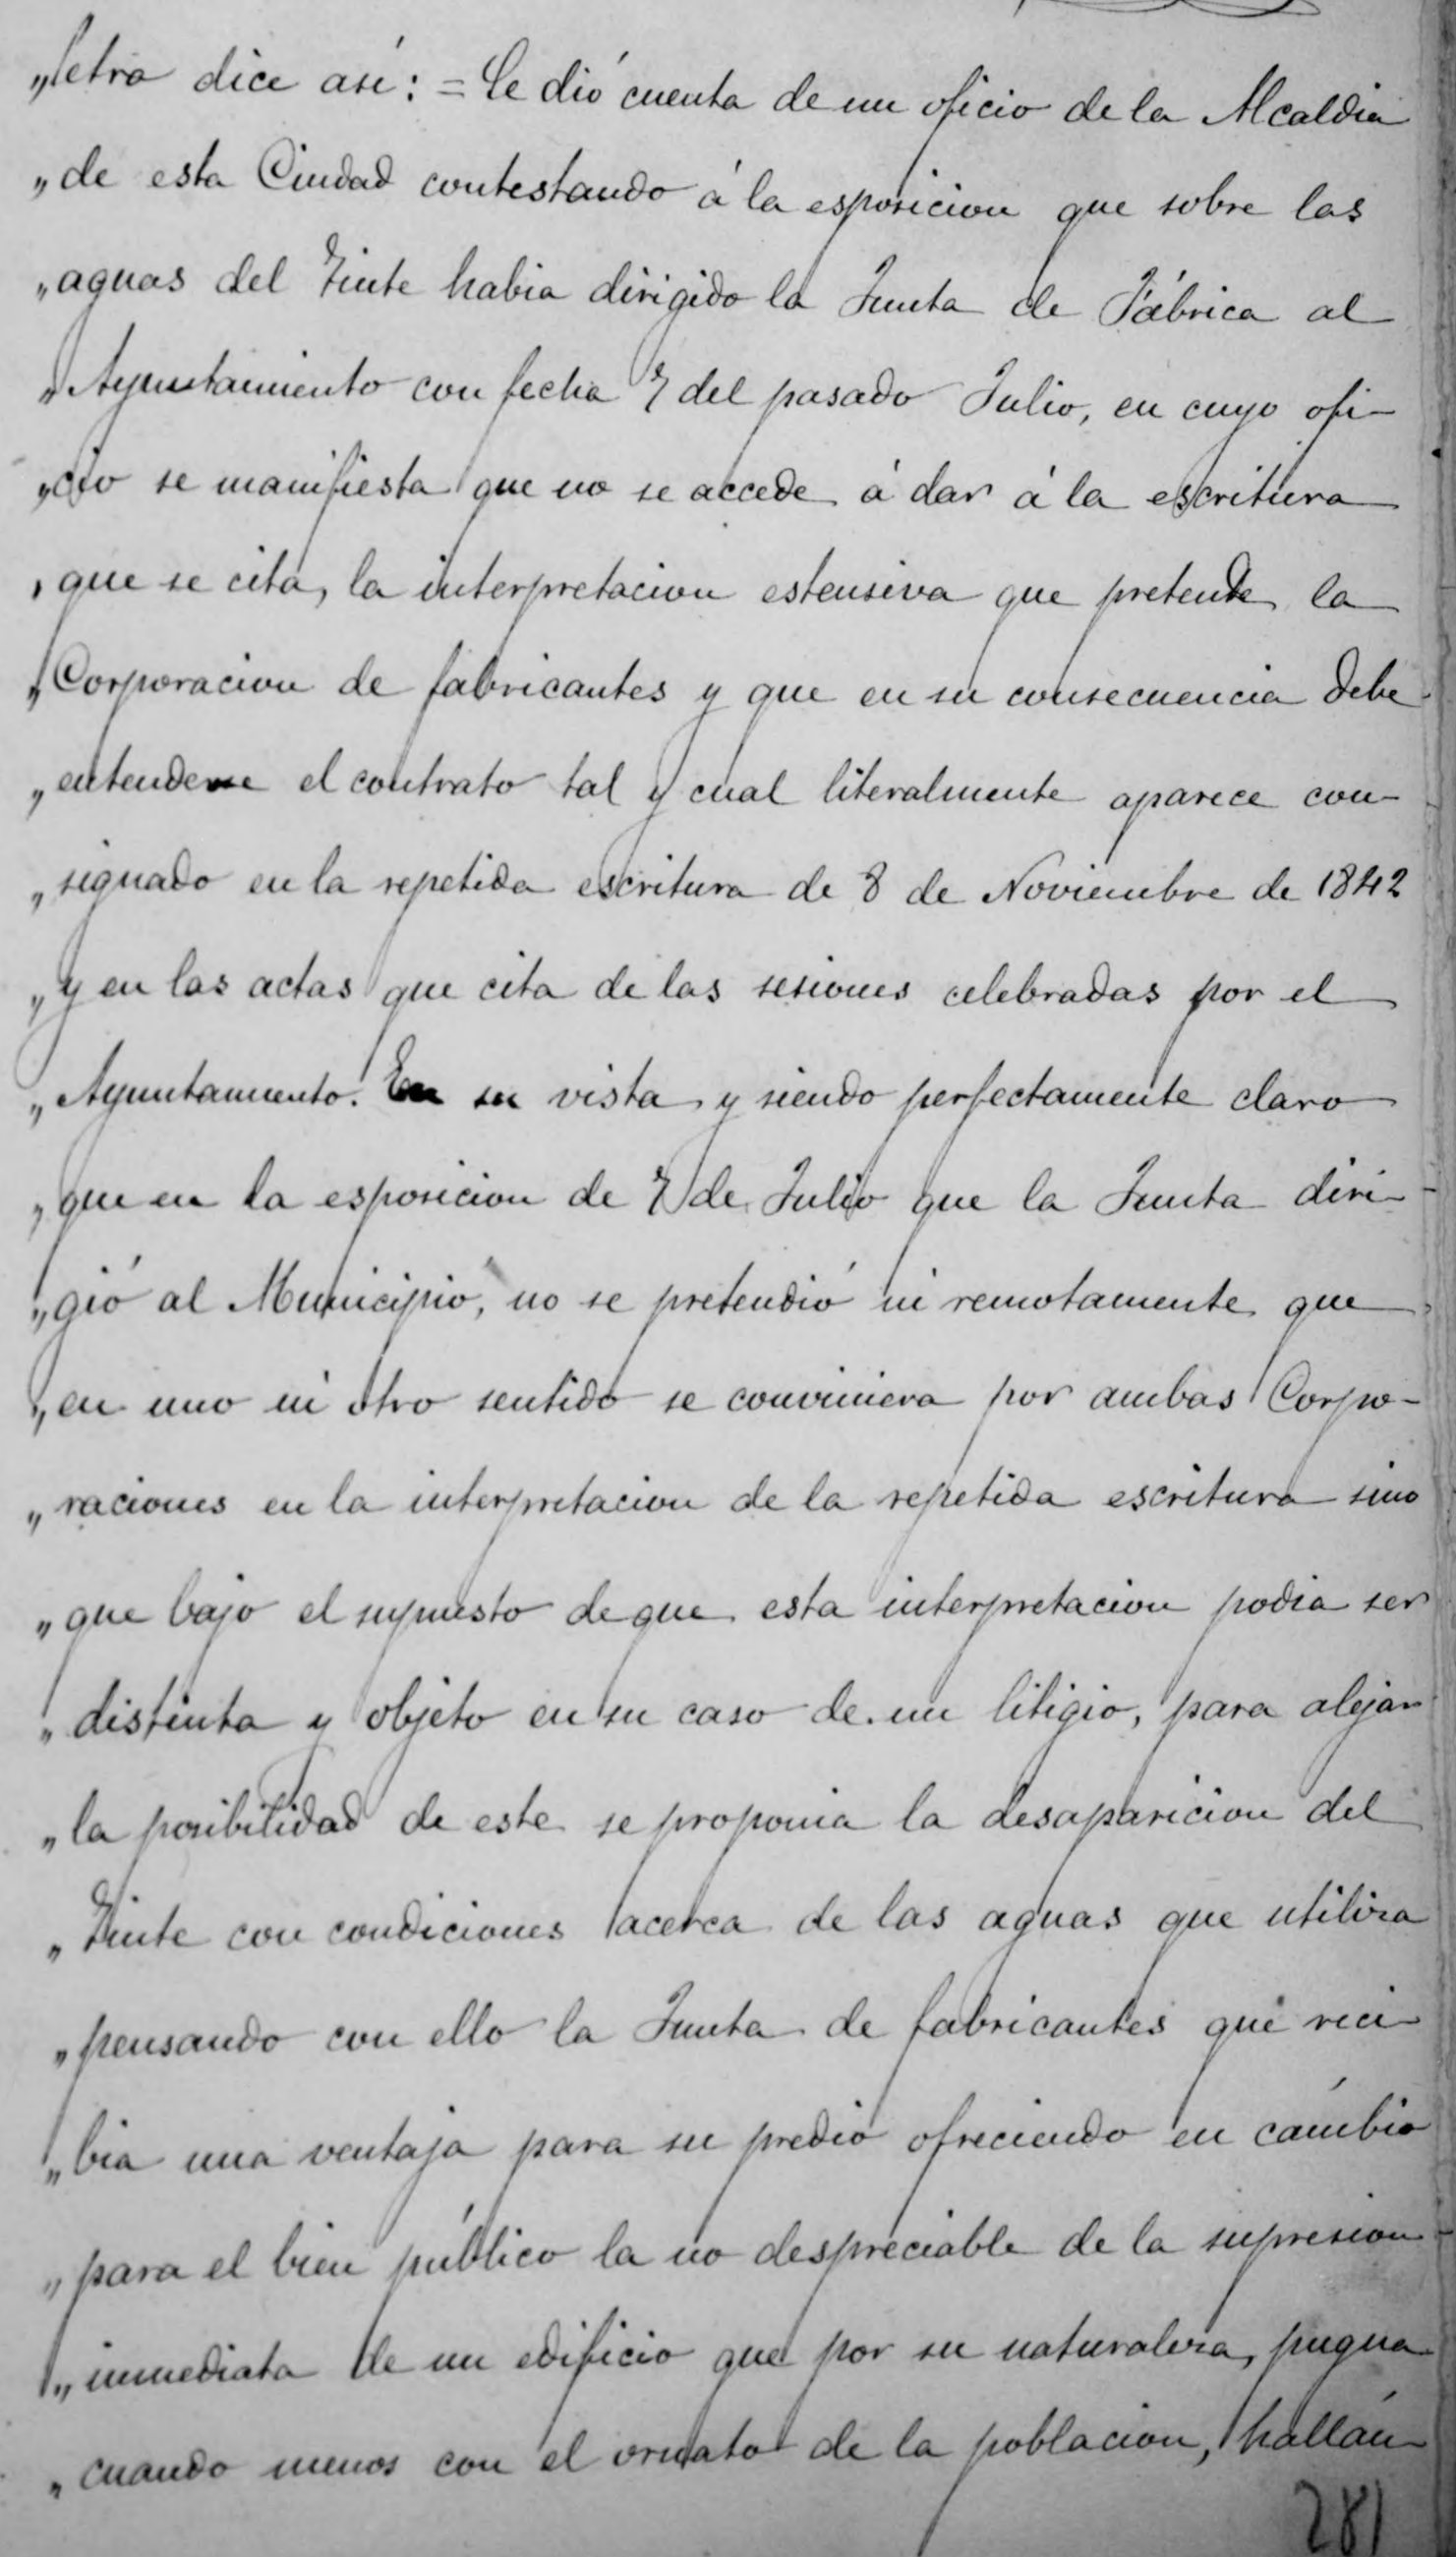 „letra dice así: = Se dió cuenta de un oficio de la Alcaldia
„de esta Ciudad contestando á la esposicion que sobre las
„aguas del Tinte habia dirigido la Junta de Fábrica al
„Ayuntamiento con fecha 7 del pasado Julio, en cuyo ofi-
„cio se manifiesta que no se accede á dar á la escritura
„que se cita, la interpretacion estensiva que pretende la
„Corporacion de fabricantes y que en su consecuencia debe
„entenderse el contrato tal y cual literalmente aparece con-
„signado en la repetida escritura de 8 de Noviembre de 1842
„y en las actas que cita de las sesiones celebradas por el
„Ayuntamiento. En su vista y siendo perfectamente claro
„que en la esposicion de 7 de Julio que la Junta diri-
„gió al Municipio, no se pretendió ni remotamente que
„en uno ni otro sentido se conviniera por ambas Corpo-
„raciones en la interpretacion de la repetida escritura sino
„que bajo el supuesto de que esta interpretacion podia ser
„distinta y objeto en su caso de un litigio, para alejar
„la posibilidad de este se proponia la desaparicion del
„Tinte con condiciones acerca de las aguas que utiliza
„pensando con ello la Junta de fabricantes que reci-
„bia una ventaja para su predio ofreciendo en cámbio
„para el bien público la no despreciable de la supresion
„inmediata de un edificio que por su naturaleza, pugna
„cuando menos con el ornato de la poblacion, hallán-
281